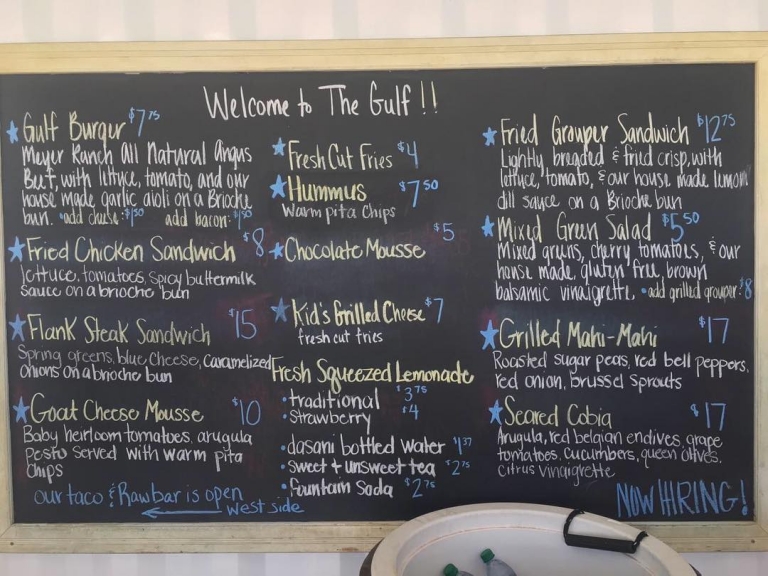 Welcome to The Gulf!!
Gulf Burger $7.75
Meyer Ranch All Natural Angus
Beef, with lettuce, tomato, and our
house made garlic aioli on a Brioche
bun. •add cheese: $.50 add bacon: $1.50
Fried Chicken Sandwich $8
lettuce, tomatoes, spicy buttermilk
sauce on a brioche bun
Flank Steak Sandwich $15
Spring greens, blue cheese, caramelized
onions on a brioche bun
Goat Cheese Mousse $10
Baby heirloom tomatoes, arugula
pesto served with warm pita
chips
our taco & Rawbar is open
west side
Fresh Cut Fries $4
Hummus $7.50
warm pita chips
Chocolate Mousse $5
Kid's Grilled Cheese $7
fresh cut fries
Fresh Squeezed Lemonade
• traditional $3.75
• Strawberry $4
• dasani bottled water $1.37
• sweet & unsweet tea $2.75
• fountain Soda $2.75
Fried Grouper Sandwich $12.75
Lightly breaded & fried crisp, with
lettuce, tomato, & our house made lemon
dill sauce on a Brioche bun
Mixed Green Salad $5.50
Mixed greens, cherry tomatoes, & our
house made, gluten free, brown
balsamic vinaigrette. • add grilled grouper: $8
Grilled Mahi-Mahi $17
Roasted sugar peas, red bell peppers,
red onion, brussel sprouts
Seared Cobia $17
Arugula, red belgian endives, grape
tomatoes, cucumbers, queen olives,
citrus vinaigrette
NOW HIRING!